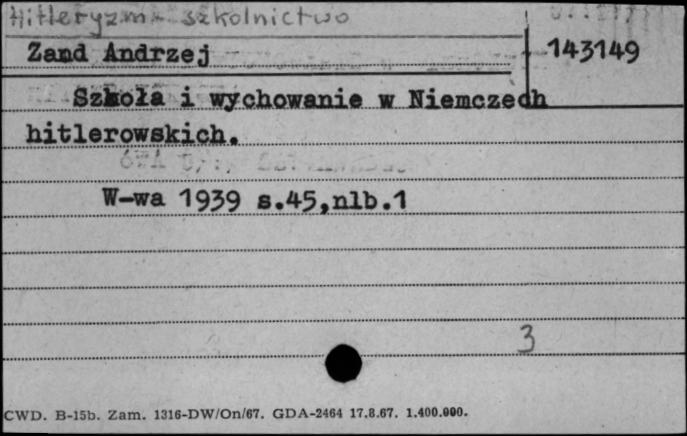 Hitleryzm - szkolnictwo
Zand Andrzej
143149
Szkoła i wychowanie w Niemczech
hitlerowskich.
W-wa 1939 s.45,nlb.1
3
CWD. B-15b. Zam. 1316-DW/On/67. GDA-2464 17.8.67. 1.400.000.